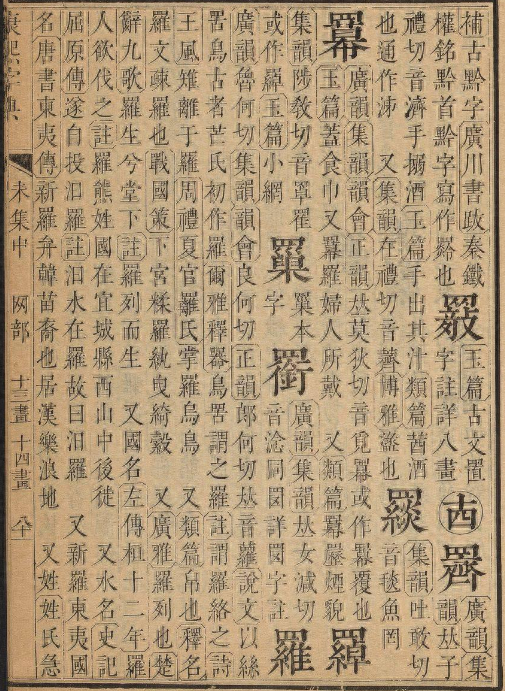 補古黔字廣川書跋秦鐵
權銘黔首黔字寫作也
玉篇古文置
字註詳八畫
十四
廣韻集
韻𠀤子
禮切音濟手搦酒玉篇手出其汁類篇莤酒
也通作泲 又集韻在禮切音薺博雅盝也
集韻吐敢切
音毯魚罔
羃
廣韻集韻韻會正韻𠀤莫狄切音覓羃或作冪覆也
玉篇蓋食巾又羃羅婦人所戴 又類篇羃䍥煙貌
集韻陟敎切音罩罹
或作羅玉篇小網
本
字
廣韻集韻𠀤女減切
音淰同図詳図字註
羅
廣韻魯何切集韻韻會良何切正韻郎何切𠀤音蘿說文以絲
罟鳥古者芒氏初作羅爾雅釋器鳥罟謂之羅註謂羅絡之詩
王風雉離于羅周禮夏官羅氏掌羅烏鳥 又類篇帛也釋名
羅文疎羅也戰國策下宮糅羅紈曳綺縠 又廣雅羅列也楚
辭九歌羅生兮堂下註羅列而生 又國名左傳桓十二年羅
人欲伐之註羅熊姓國在宜城縣西山中後徙 又水名史記
屈原傳遂自投汨羅註汨水在羅故曰汨羅 又新羅東夷國
名唐書東夷傳新羅弁韓苗裔也居漢樂浪地 又姓姓氏急
康熙字典 未集中 网部 十三畫 十四畫 八十